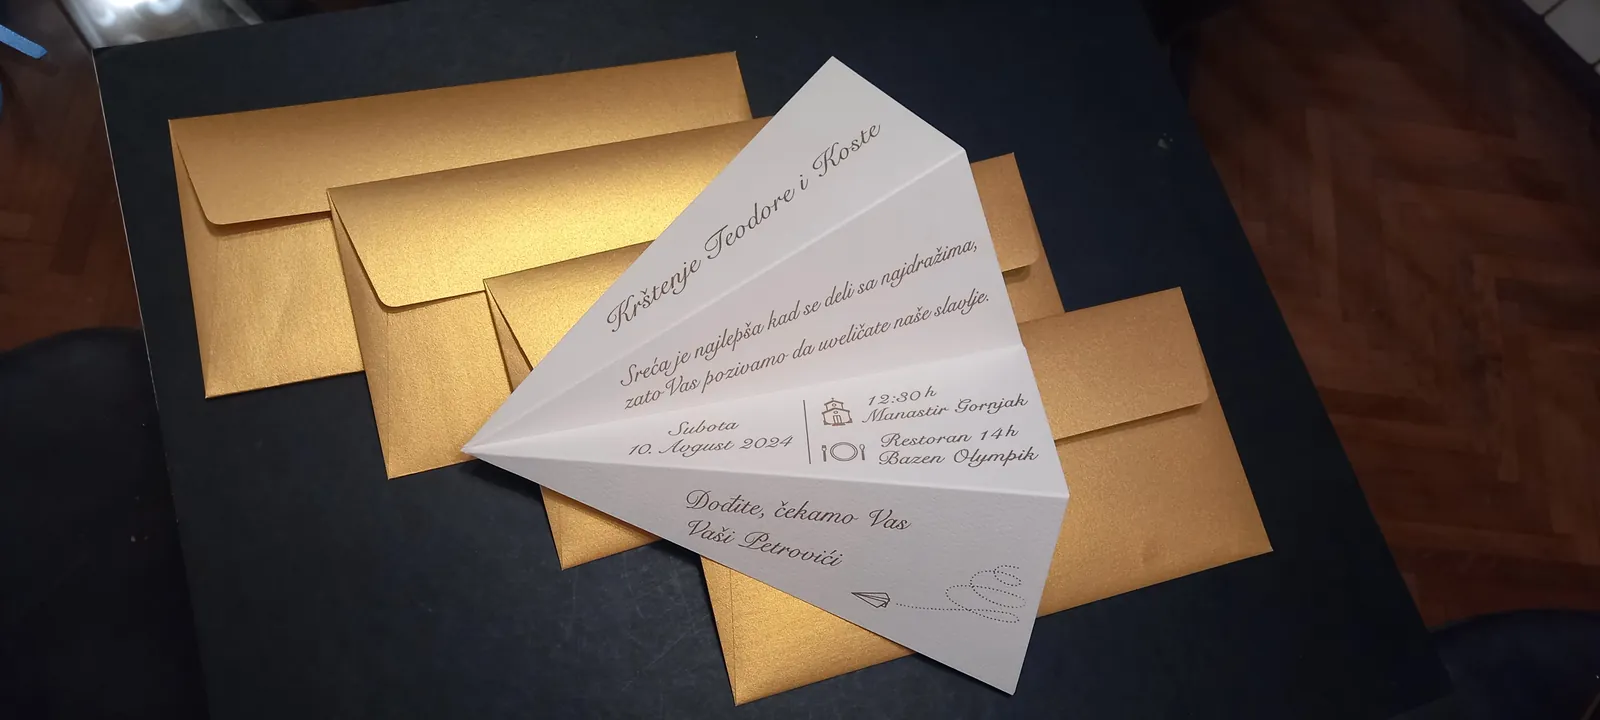 Krštenje Teodore i Koste
Sreća je najlepša kad se deli sa najdražima,
zato Vas pozivamo da uveličate naše slavlje.
Subota
10. Avgust 2024
12:30 h
Manastir Gornjak
Restoran 14h
Bazen Olympik
Dođite, čekamo Vas
Vaši Petrovići